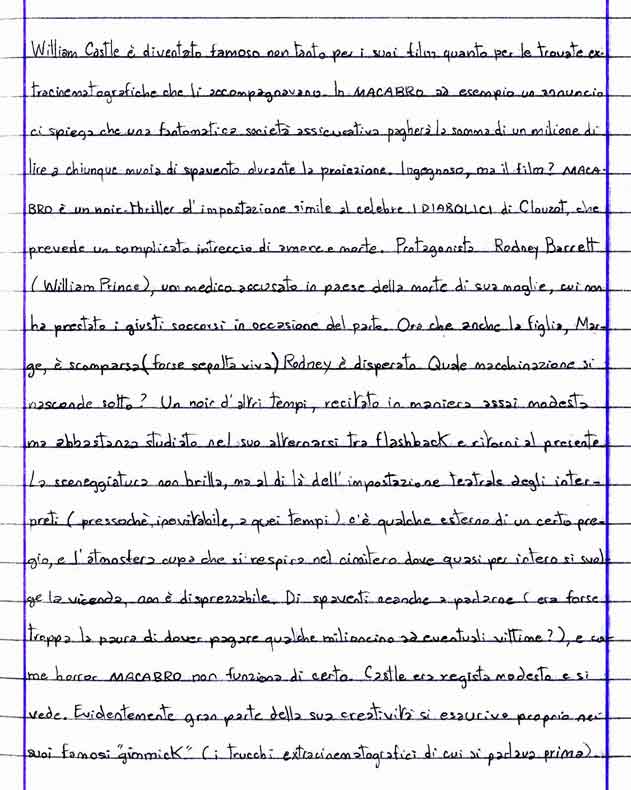 William Castle è diventato famoso non tanto per i suoi film quanto per le trovate ex-
tracinematografiche che li accompagnavano. In MACABRO ad esempio un annuncio
ci spiega che una fantomatica società assicurativa pagherà la somma di un milione di
lire a chiunque muoia di spavento durante la proiezione. Ingegnoso, ma il film? MACA-
BRO è un noir-thriller d'impostazione simile al celebre I DIABOLICI di Clouzot, che
prevede un complicato intreccio di amore e morte. Protagonista Rodney Barrett
(William Prince), un medico accusato in paese della morte di sua moglie, cui non
ha prestato i giusti soccorsi in occasione del parto. Ora che anche la figlia, Mar-
ge, è scomparsa (forse sepolta viva) Rodney è disperato. Quale macchinazione si
nasconde sotto? Un noir d'altri tempi, recitato in maniera assai modesta
ma abbastanza studiato nel suo alternarsi tra flashback e ritorni al presente.
La sceneggiatura non brilla, ma al di là dell'impostazione teatrale degli inter-
preti (pressochè inevitabile, a quei tempi) c'è qualche esterno di un certo pre-
gio, e l'atmosfera cupa che si respira nel cimitero dove quasi per intero si svol-
ge la vicenda, non è disprezzabile. Di spaventi neanche a parlarne (era forse
troppa la paura di dover pagare qualche milioncino ad eventuali vittime?), e co-
me horror MACABRO non funziona di certo. Castle era regista modesto e si
vede. Evidentemente gran parte della sua creatività si esauriva proprio nei
suoi famosi "gimmick" (i trucchi extracinematografici di cui si parlava prima).